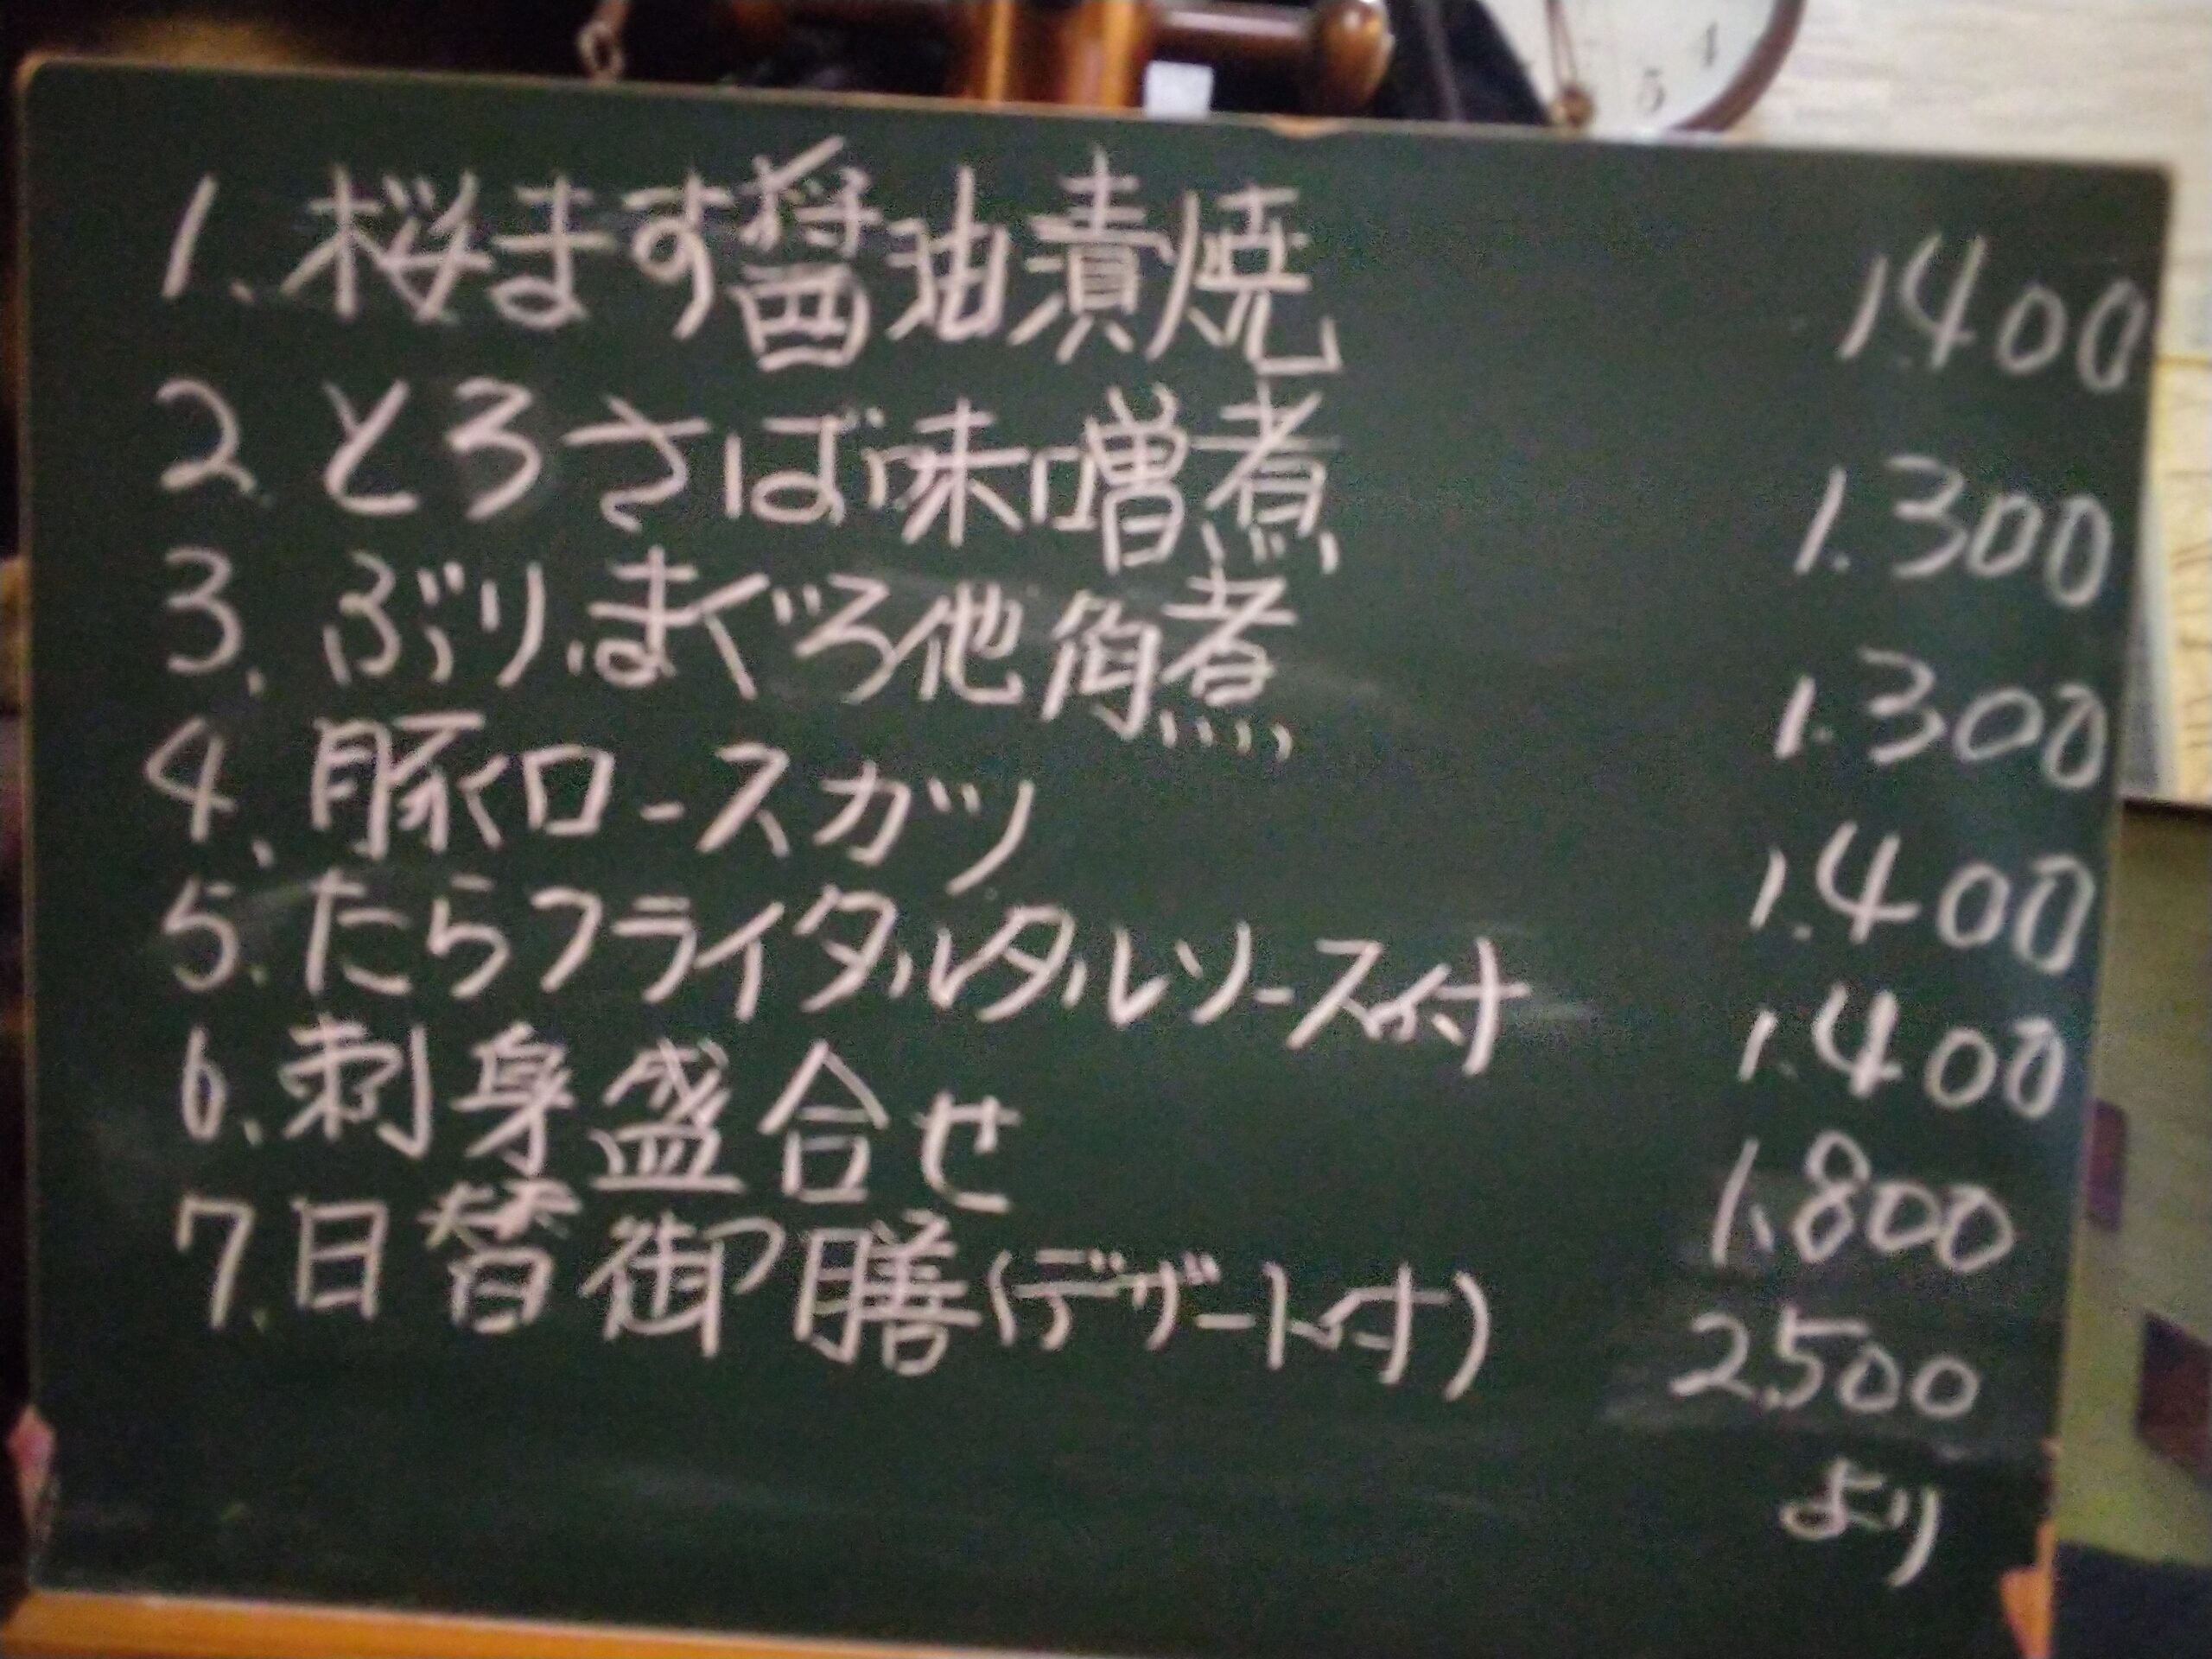 1. 桜ます醤油漬焼 1.400
2. とろさば味噌煮 1.300
3. ぶり.まぐろ他角煮 1.300
4. 豚ロースカツ 1.400
5. たらフライタルタルソース付 1.400
6. 刺身盛合せ 1.800
7. 日替御膳(デザート付) 2.500
より
4
5